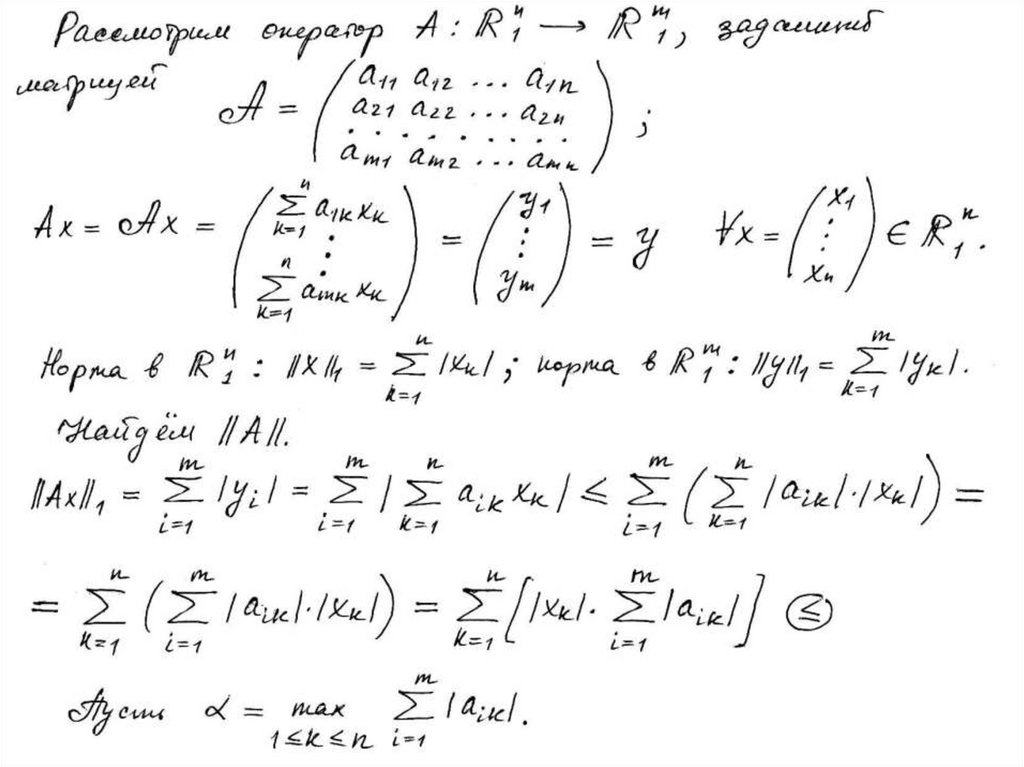 Рассмотрим оператор A : ℝ₁ⁿ → ℝ₁ᵐ, заданный
матрицей 𝒜 = ( a₁₁ a₁₂ ... a₁ₙ
a₂₁ a₂₂ ... a₂ₙ
. . . . . . . . .
aₘ₁ aₘ₂ ... aₘₙ ) ;
Ax = 𝒜x = ( ∑_{k=1}^{n} a_{1k} x_k ⋮ ∑_{k=1}^{n} a_{mk} x_k ) = ( y₁ ⋮ y_m ) = y ∀x = ( x₁ ⋮ x_n ) ∈ ℝ₁ⁿ.
Норма в ℝ₁ⁿ : ||x||₁ = ∑_{k=1}^{n} |x_k| ; норма в ℝ₁ᵐ : ||y||₁ = ∑_{k=1}^{m} |y_k|.
Найдём ||A||.
||Ax||₁ = ∑_{i=1}^{m} |y_i| = ∑_{i=1}^{m} | ∑_{k=1}^{n} a_{ik} x_k | ≤ ∑_{i=1}^{m} ( ∑_{k=1}^{n} |a_{ik}|·|x_k| ) =
= ∑_{k=1}^{n} ( ∑_{i=1}^{m} |a_{ik}|·|x_k| ) = ∑_{k=1}^{n} [ |x_k| · ∑_{i=1}^{m} |a_{ik}| ] ≤
Пусть α = max_{1≤k≤n} ∑_{i=1}^{m} |a_{ik}|.